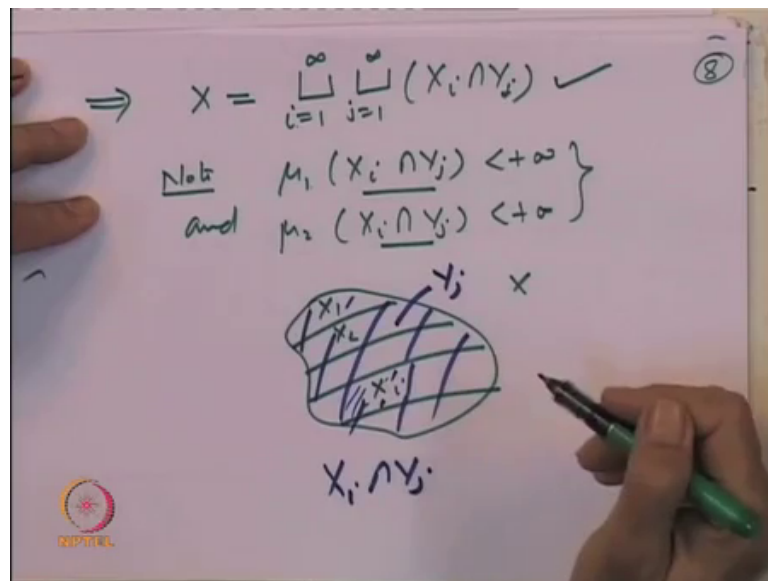 ⑧
⇒ X = ∞⊔i=1 ∞⊔j=1 (Xi ∩ Yj) ✓
Note μ₁ (Xi ∩ Yj) < +∞ }
and μ₂ (Xi ∩ Yj) < +∞
Yj X
X₁
X₂
Xi
Xi ∩ Yj
NPTEL